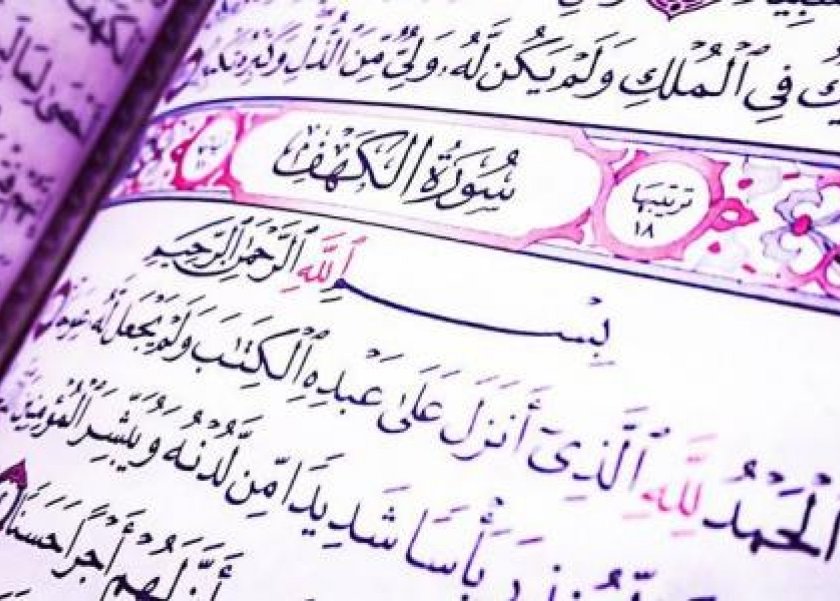 فِي ٱلْمُلْكِ وَلَمْ يَكُن لَّهُۥ وَلِيٌّ مِّنَ ٱلذُّلِّ وَكَبِّرْهُ
سُورَةُ الكَهْفِ
ترتيبها
١٨
بِسْمِ ٱللَّهِ ٱلرَّحْمَٰنِ ٱلرَّحِيمِ
ٱلْحَمْدُ لِلَّهِ ٱلَّذِىٓ أَنزَلَ عَلَىٰ عَبْدِهِ ٱلْكِتَٰبَ وَلَمْ يَجْعَل لَّهُۥ عِوَجَا
بَأْسًا شَدِيدًا مِّن لَّدُنْهُ وَيُبَشِّرَ ٱلْمُؤْمِنِينَ
أَنَّ لَهُمْ أَجْرًا حَسَنًا